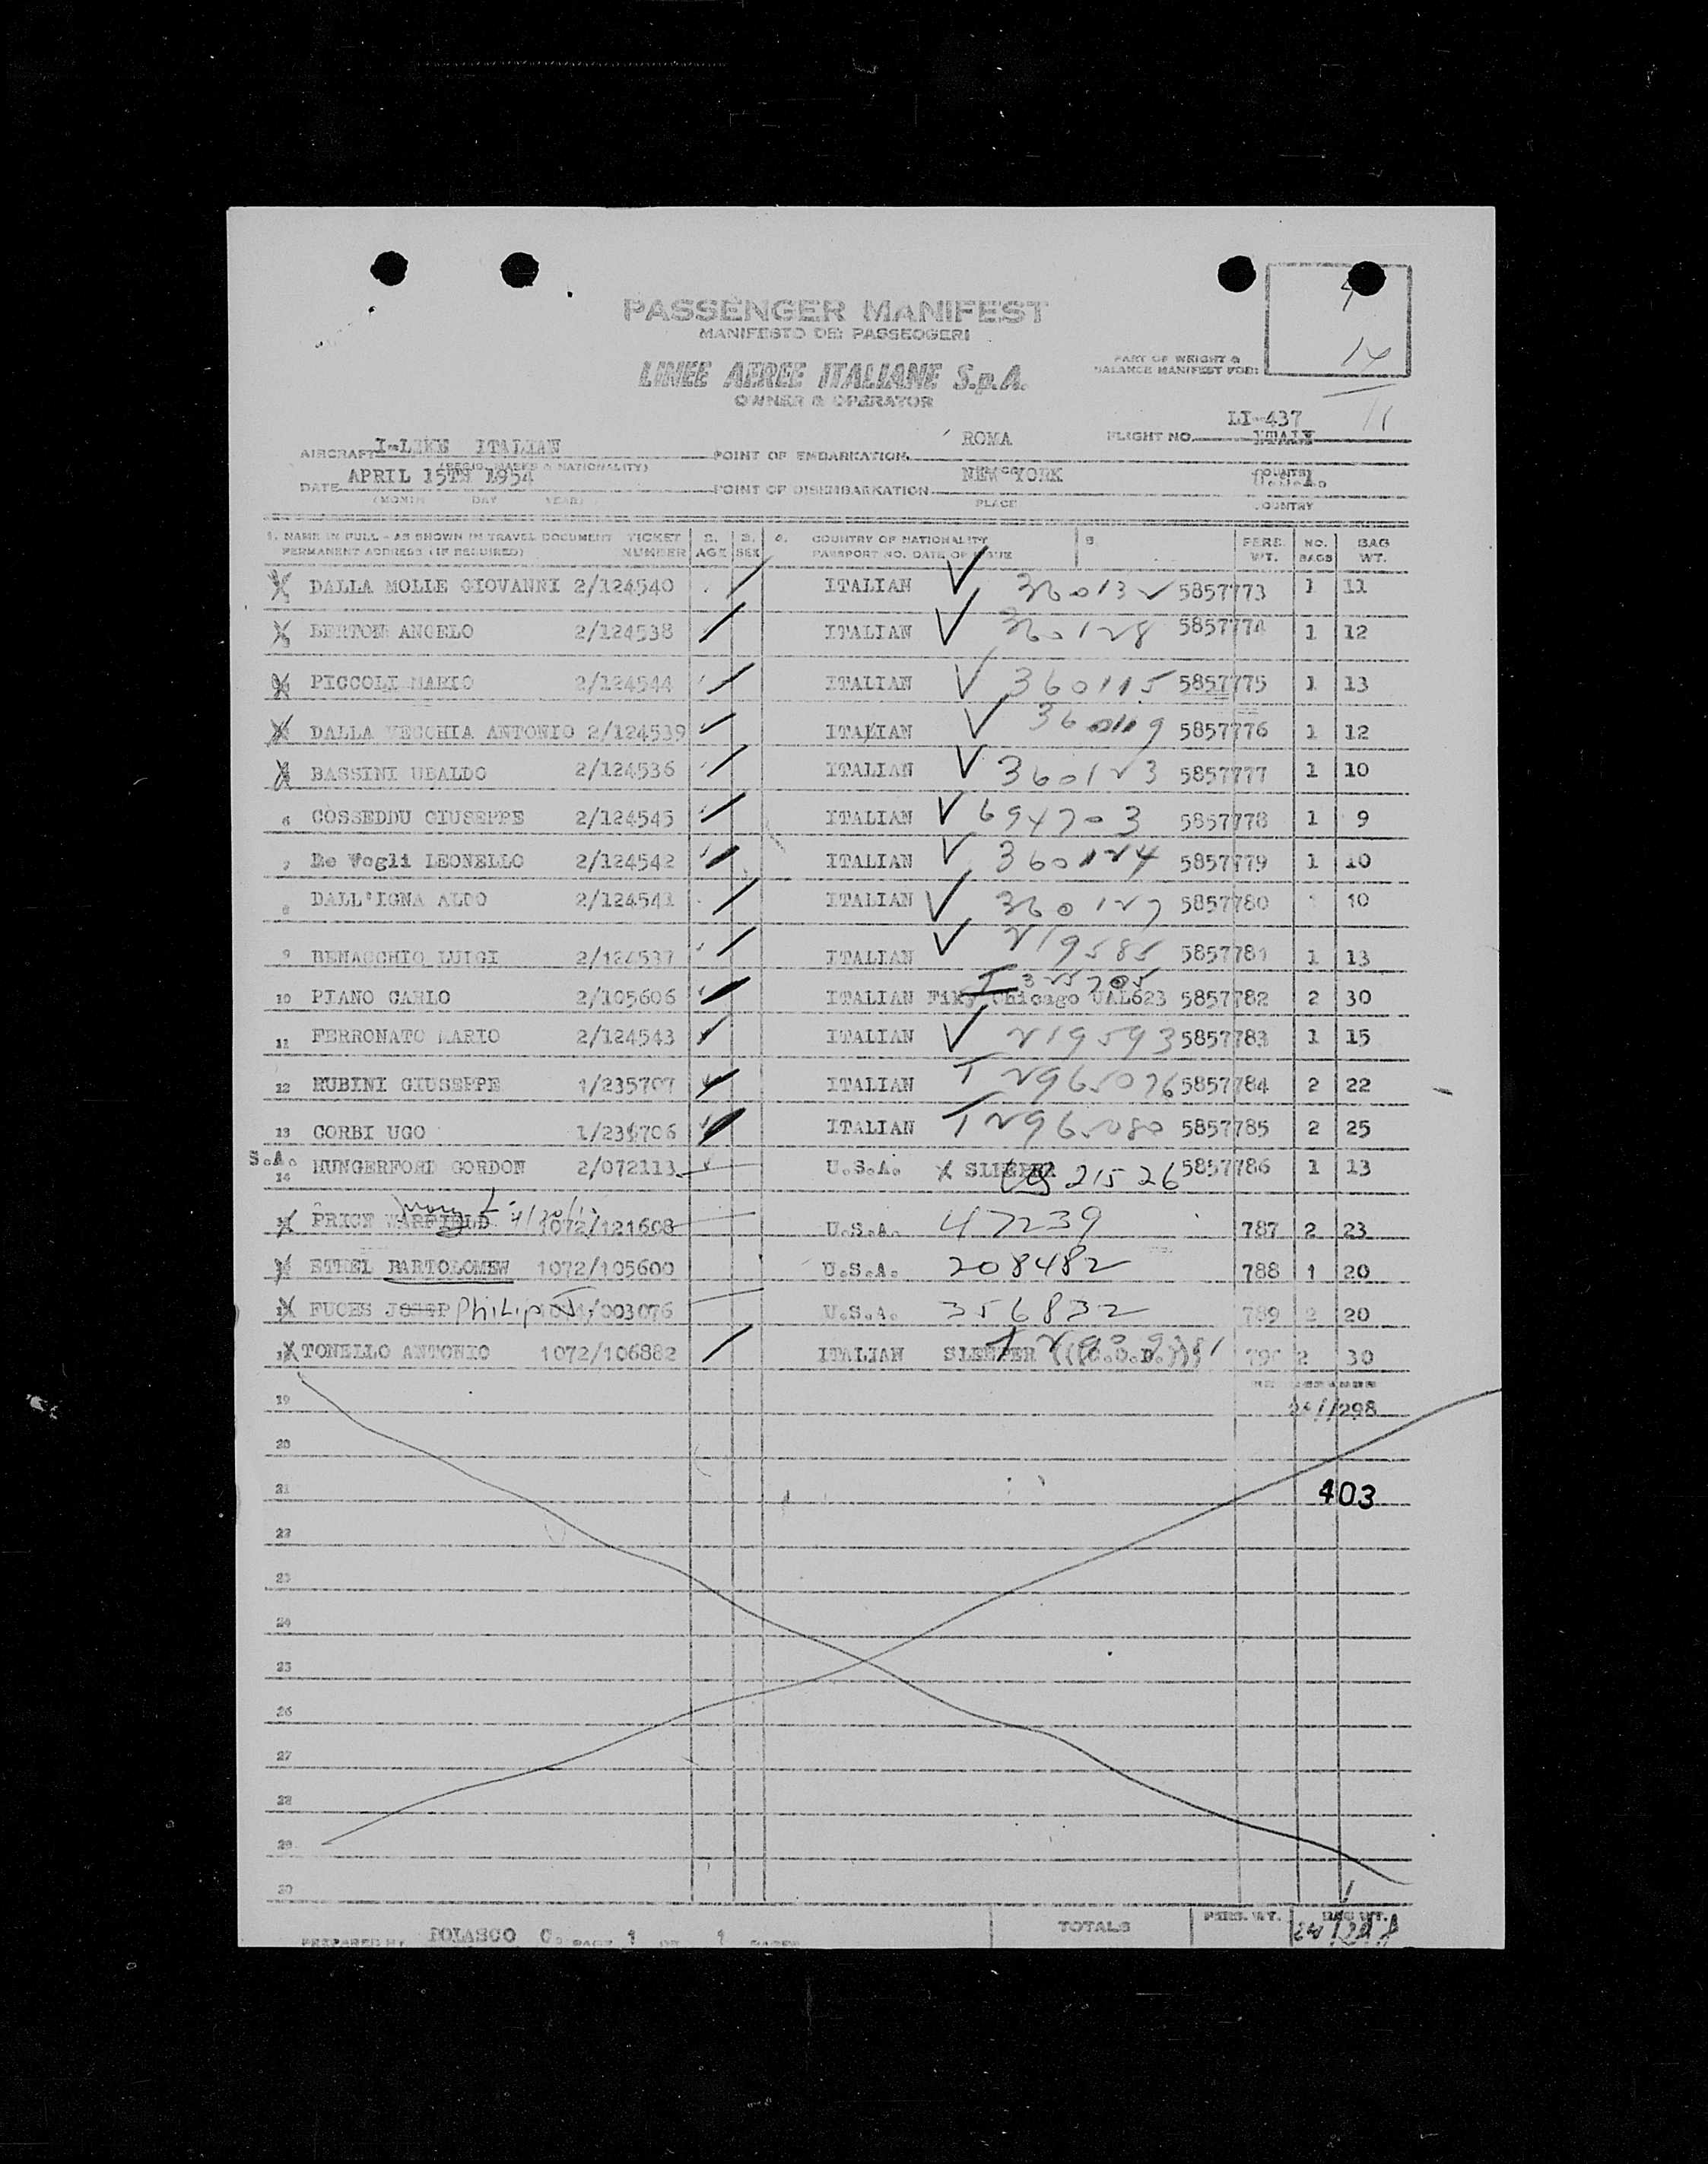 PASSENGER MANIFEST
MANIFESTO DEI PASSEGGERI
LINEE AEREE ITALIANE S.p.A.
OWNER & OPERATOR
PART OF WEIGHT &
BALANCE MANIFEST FOR:
14
LI-437
AIRCRAFT I-LEKE ITALIAN POINT OF EMBARKATION ROMA FLIGHT NO. ITALY
(REGIS. MARKS & NATIONALITY)
DATE APRIL 15TH 1954 POINT OF DISEMBARKATION NEW YORK
(MONTH DAY YEAR) PLACE COUNTRY
1. NAME IN FULL - AS SHOWN IN TRAVEL DOCUMENT TICKET 2. 3. 4. COUNTRY OF NATIONALITY 5. PERS. NO. BAG
PERMANENT ADDRESS (IF REQUIRED) NUMBER AGE SEX PASSPORT NO. DATE OF ISSUE WT. BAGS WT.
DALLA MOLLE GIOVANNI 2/124540 ITALIAN 360132 5857773 1 11
BERTON ANGELO 2/124538 ITALIAN 360128 5857774 1 12
PICCOLI MARIO 2/124544 ITALIAN 360115 5857775 1 13
DALLA VECCHIA ANTONIO 2/124539 ITALIAN 360119 5857776 1 12
BASSINI UBALDO 2/124536 ITALIAN 360123 5857777 1 10
6 COSSEDDU GIUSEPPE 2/124545 ITALIAN 694703 5857778 1 9
7 De Vogli LEONELLO 2/124542 ITALIAN 360124 5857779 1 10
8 DALL'IGNA ALDO 2/124541 ITALIAN 360127 5857780 1 10
9 BENACCHIO LUIGI 2/124537 ITALIAN 219585 5857781 1 13
10 PIANO CARLO 2/105606 ITALIAN Chicago UAL623 5857782 2 30
11 FERRONATO MARIO 2/124543 ITALIAN 219593 5857783 1 15
12 RUBINI GIUSEPPE 1/235707 ITALIAN T 2965076 5857784 2 22
13 CORBI UGO 1/235706 ITALIAN T 2965080 5857785 2 25
S.A. 14 HUNGERFORD GORDON 2/072113 U.S.A. X SLEEPER 21526 5857786 1 13
PRICE WARFIELD 1072/121608 U.S.A. 47239 787 2 23
ETHEL BARTOLOMEW 1072/105600 U.S.A. 208482 788 1 20
FUCHS JOSEP PhiLip J. /003076 U.S.A. 356832 789 2 20
TONELLO ANTONIO 1072/106882 ITALIAN SLEEPER 790 2 30
19 298
20
21 403
22
23
24
25
26
27
28
29
30
PREPARED BY POLASCO C. PAGE 1 OF 1 PAGES TOTALS PERS. WT. BAG WT.